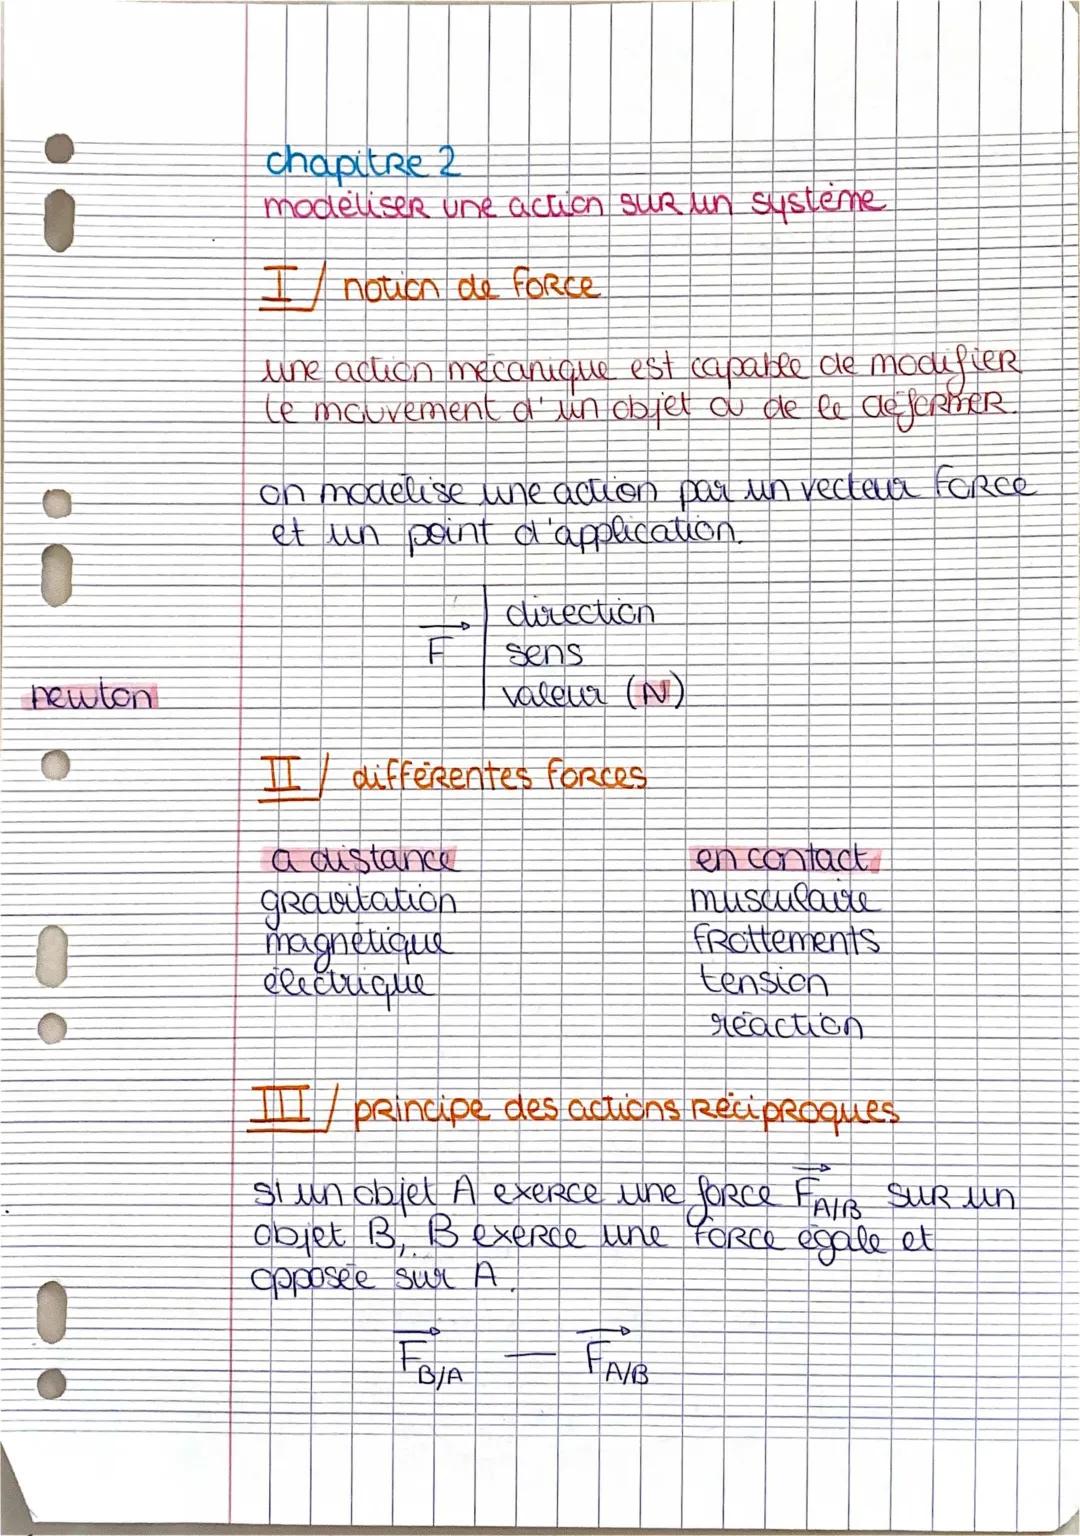 chapitre 2
modéliser une action sur un système
I / notion de force
une action mécanique est capable de modifier
le mouvement d'un objet ou de le déformer.
on modélise une action par un vecteur force
et un point d'application.
F
direction
sens
valeur (N)
newton
II / différentes forces
a distance
gravitation
magnétique
électrique
en contact
musculaire
frottements
tension
réaction
III / principe des actions réciproques
si un objet A exerce une force F A/B sur un
objet B, B exerce une force égale et
opposée sur A.
F B/A — F A/B